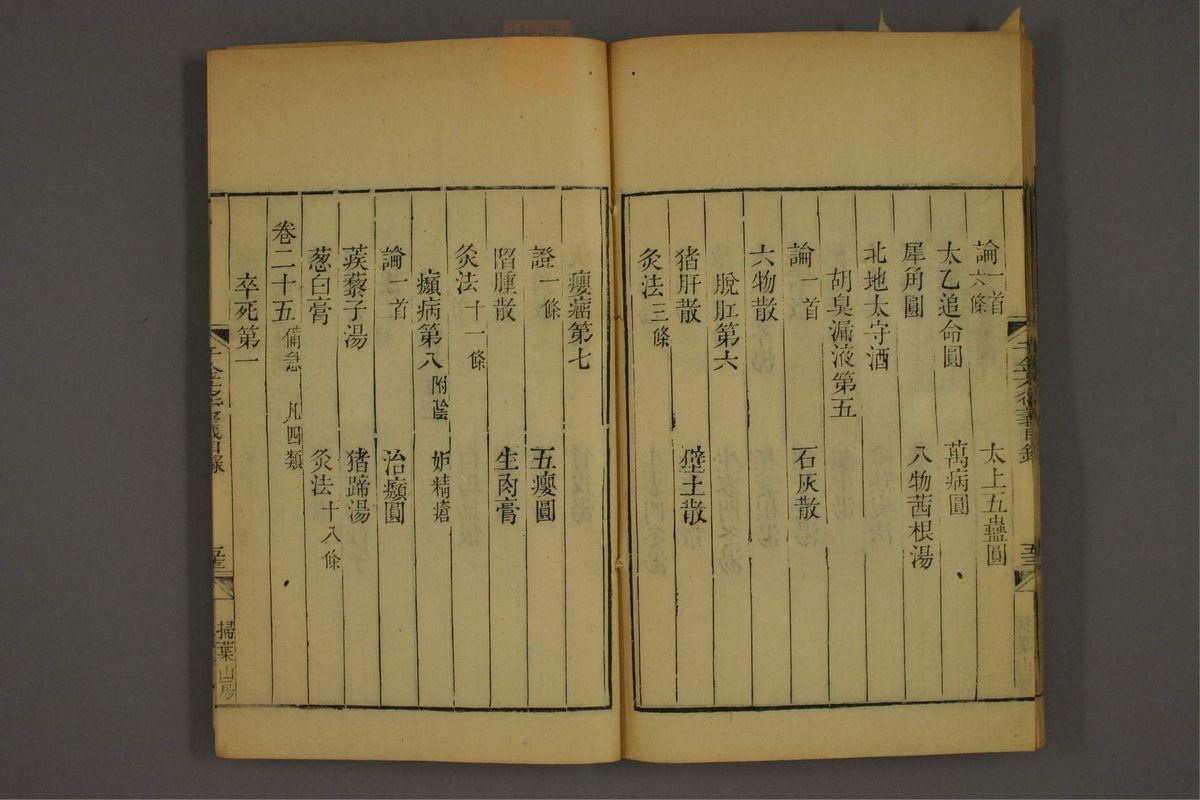 論一首 六條 太上五蠱圓
太乙追命圓 萬病圓
犀角圓 八物茜根湯
北地太守酒
胡臭漏液第五
論一首 石灰散
六物散
脫肛第六
猪肝散 壁土散
灸法三條
癭瘤第七
證一條 五癭圓
㿈腫散 生肉膏
灸法十一條
㿗病第八 附陰 妬精瘡
論一首 治㿗圓
蒺藜子湯 猪蹄湯
葱白膏 灸法十八條
卷二十五 備急 凡四類
卒死第一
千金方衍義目錄 掃葉山房